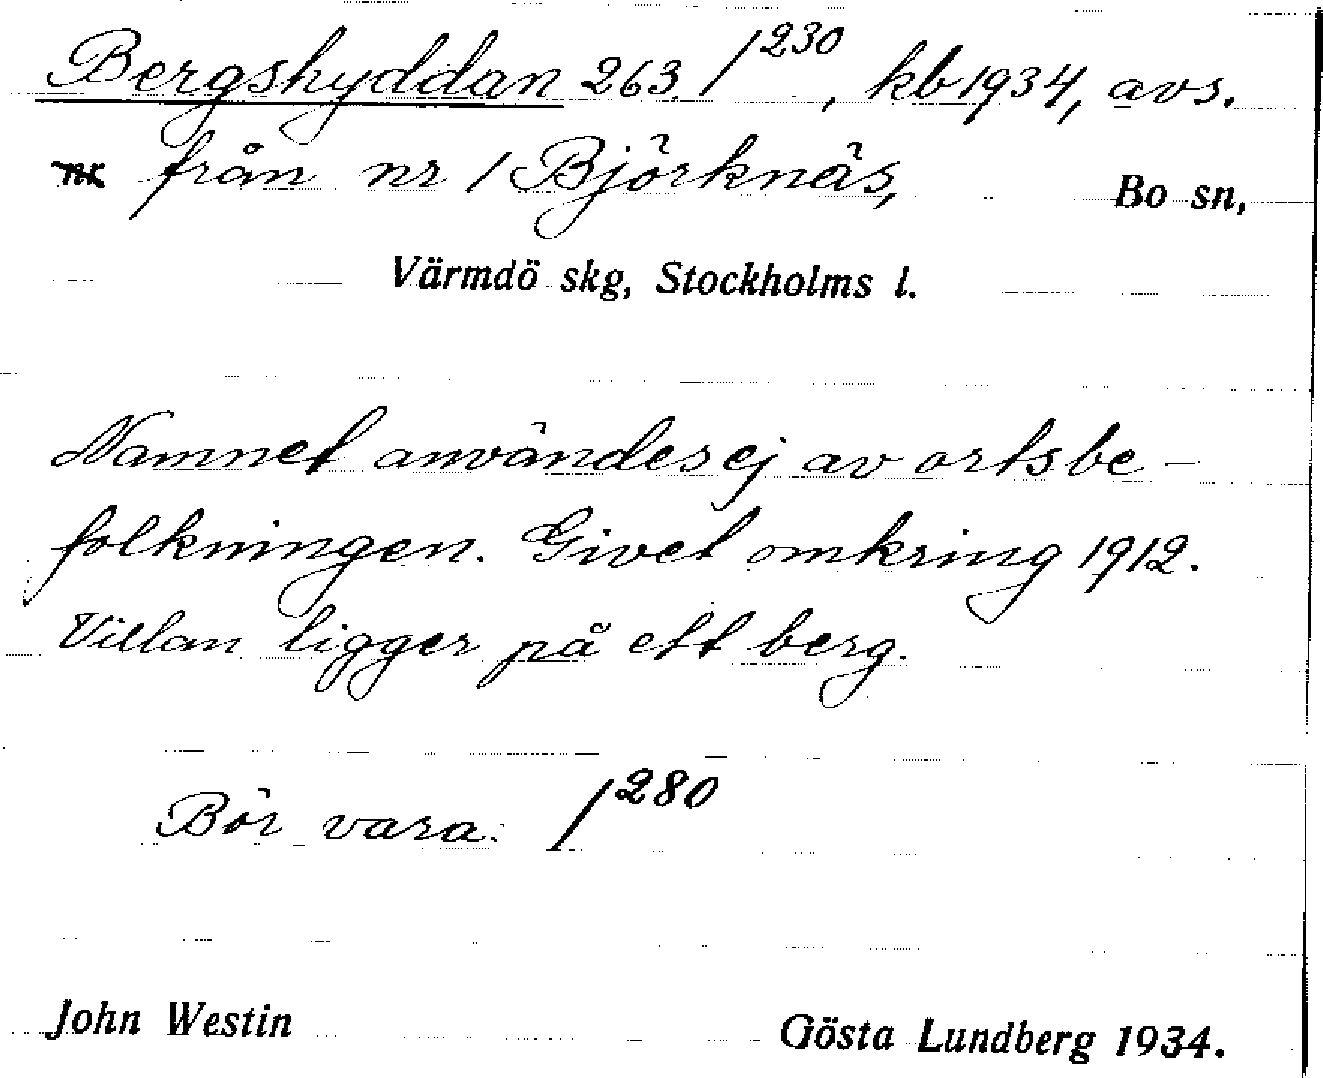 Bergshyddan 263. /230, kb 1934, avs.
från nr 1 Björknäs, Bo sn,
Värmdö skg, Stockholms l.
Namnet användes ej av ortsbe-
folkningen. Givet omkring 1912.
Villan ligger på ett berg.
Bör vara: /280
John Westin Gösta Lundberg 1934.